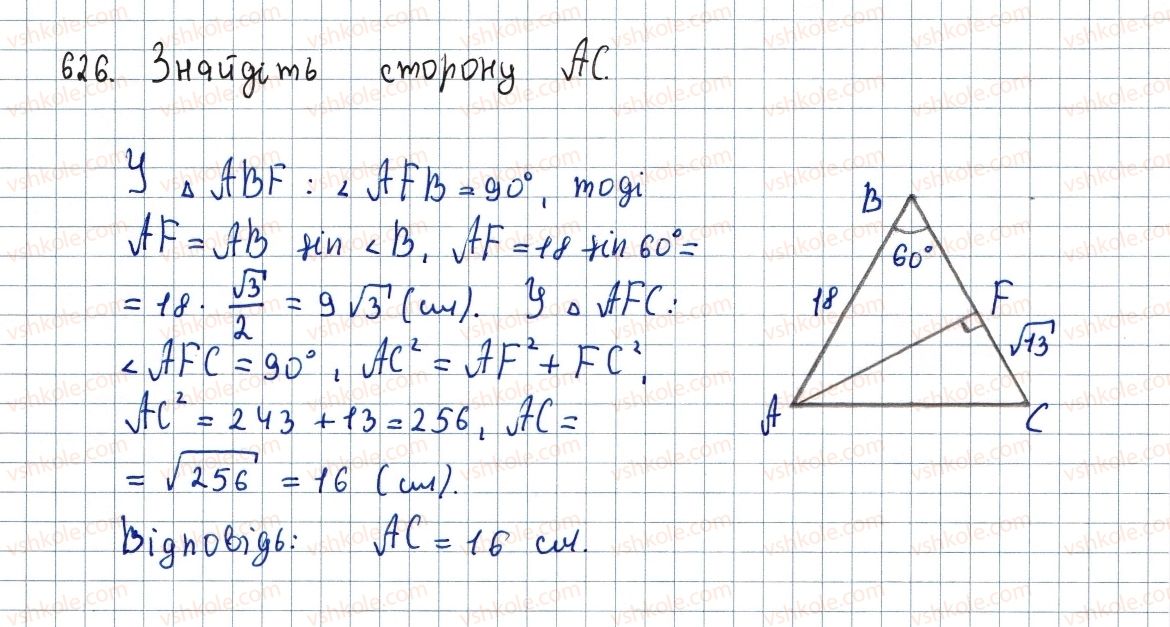 626. Знайдіть сторону AC.
У △ ABF : < AFB = 90°, тоді
AF = AB sin < B, AF = 18 sin 60° =
= 18 · √3/2 = 9 √3 (см). У △ AFC :
< AFC = 90°, AC² = AF² + FC²,
AC² = 243 + 13 = 256, AC =
= √256 = 16 (см).
Відповідь: AC = 16 см.
B
60°
18
F
√13
A
C